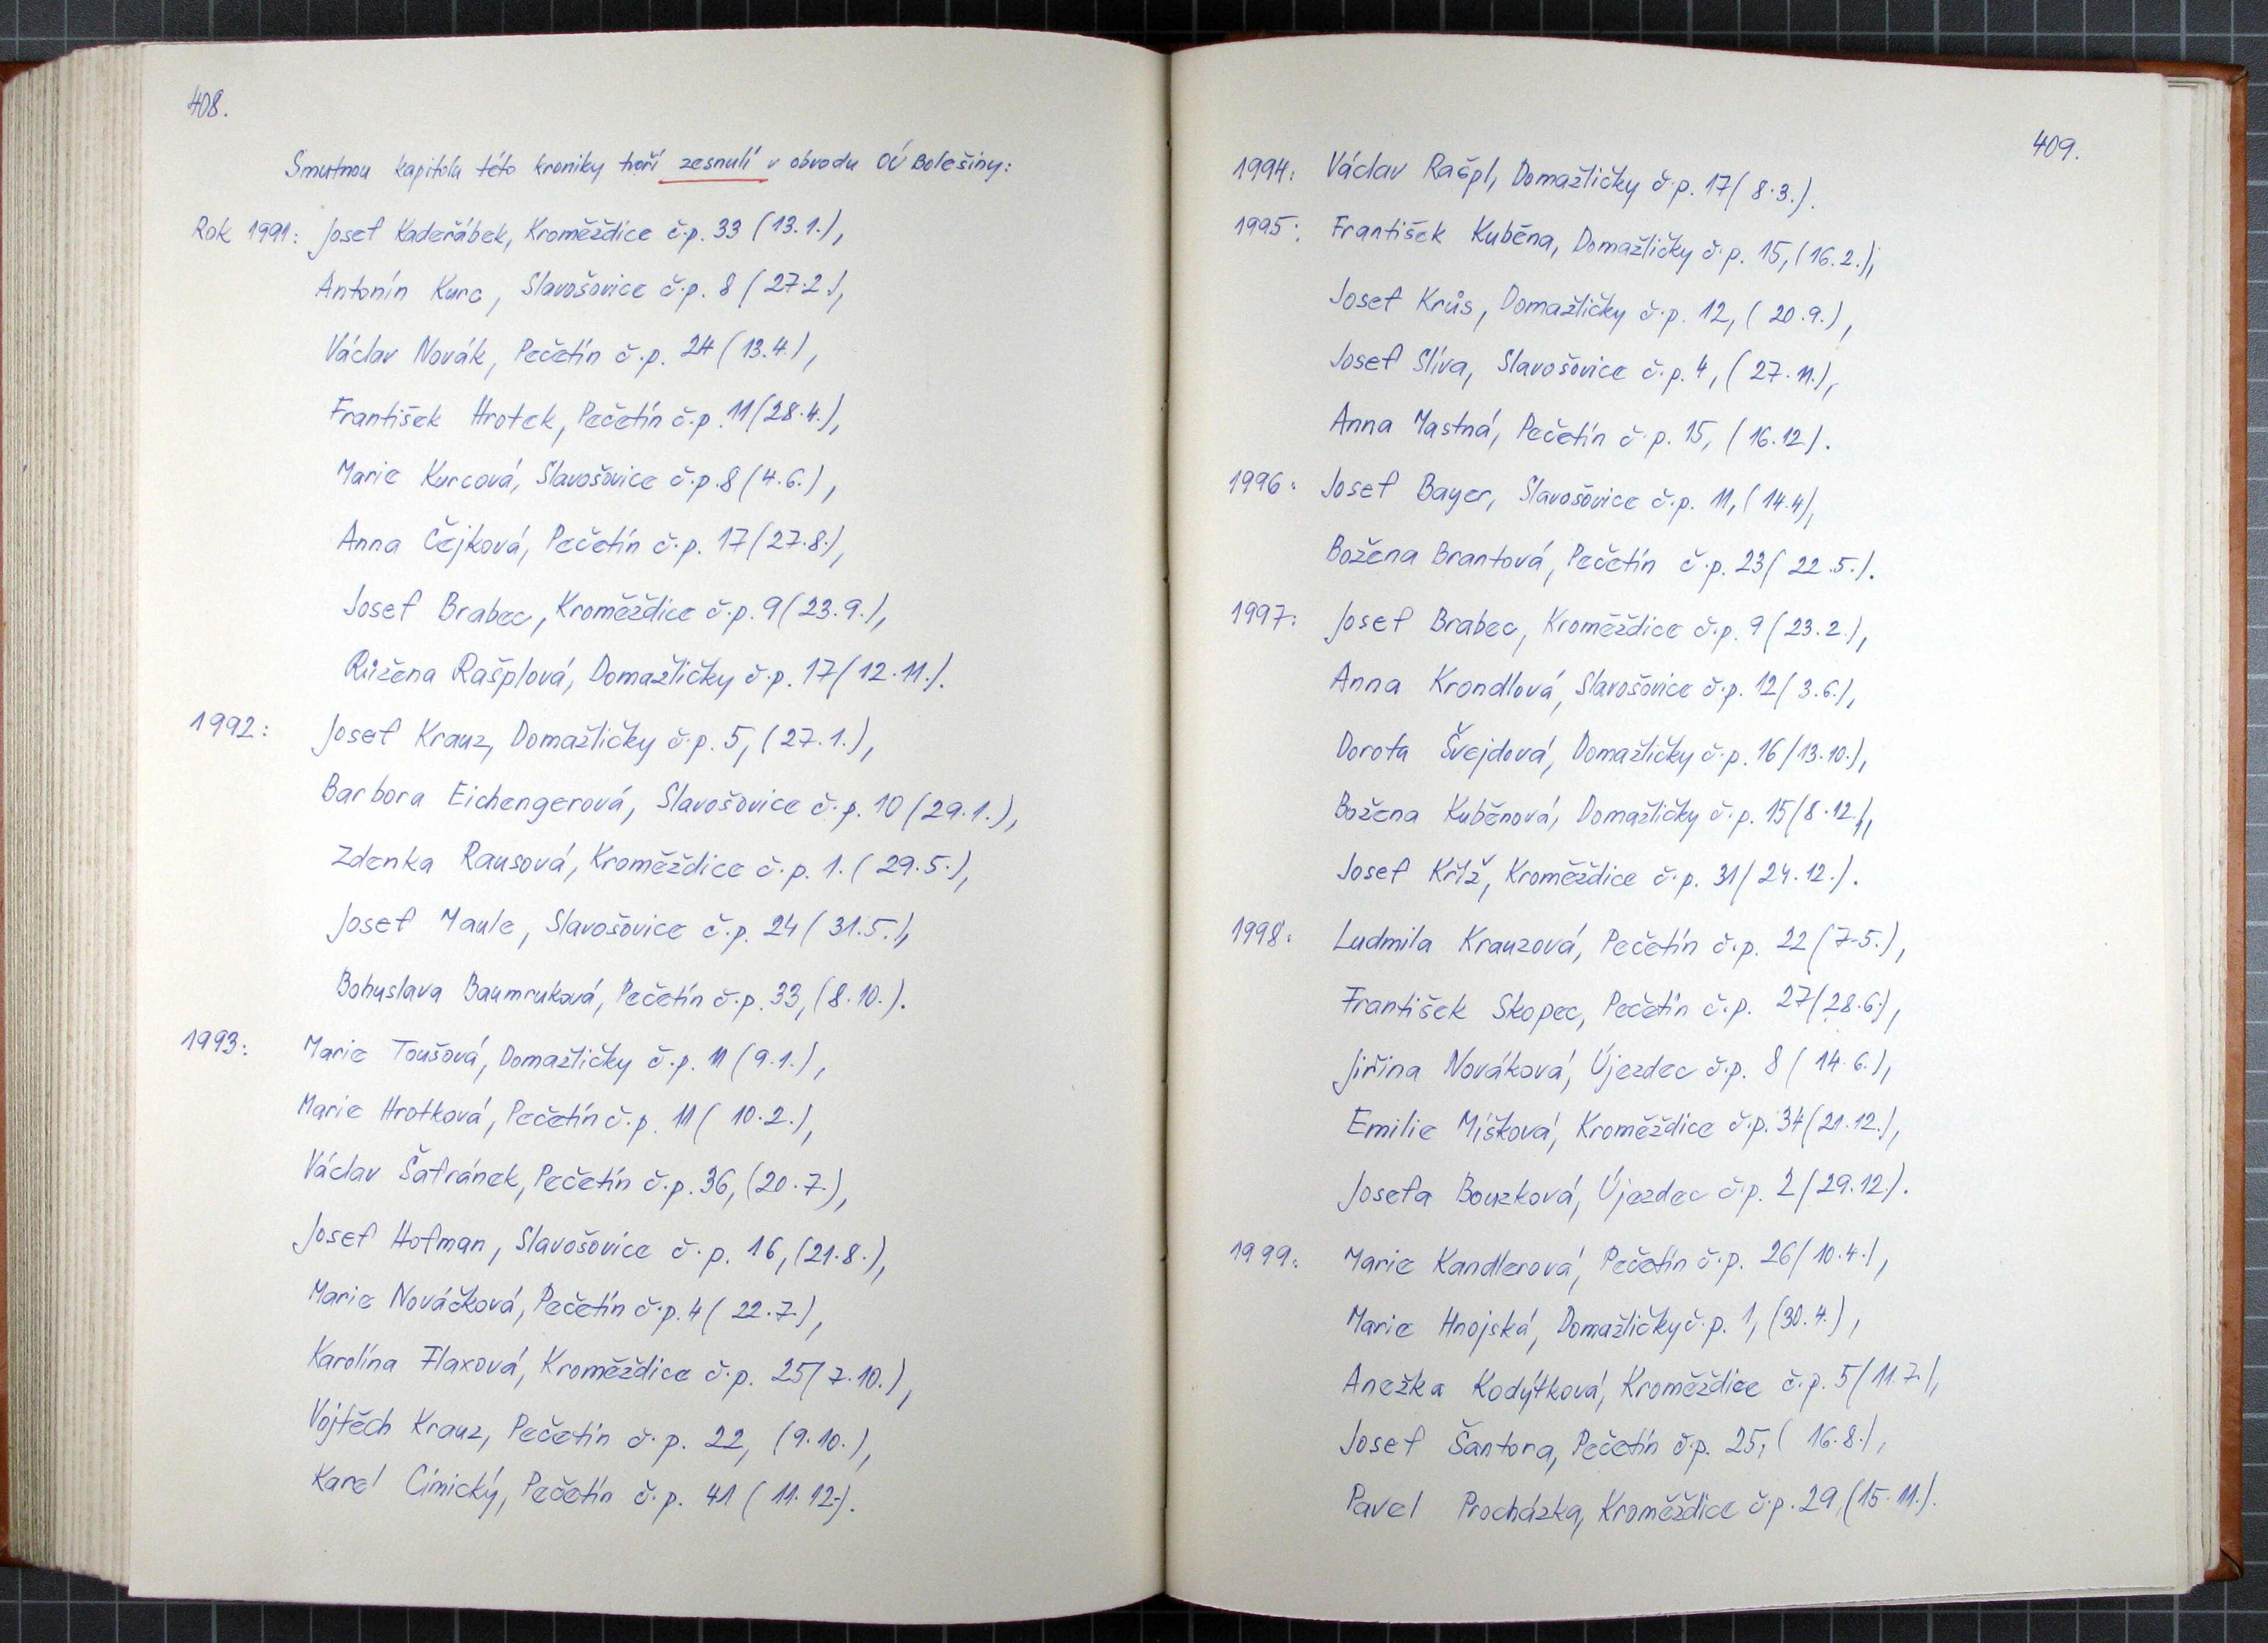 408.
Smutnou kapitolu této kroniky tvoří zesnulí v obvodu OÚ Bolešiny:
Rok 1991: Josef Kadeřábek, Kroměždice č.p. 33 (13.1.),
Antonín Kurc, Slavošovice č.p. 8 (27.2.),
Václav Novák, Pečetín č.p. 24 (13.4.),
František Hrotek, Pečetín č.p. 11 (28.4.),
Marie Kurcová, Slavošovice č.p. 8 (4.6.),
Anna Čejková, Pečetín č.p. 17 (27.8.),
Josef Brabec, Kroměždice č.p. 9 (23.9.),
Růžena Rašplová, Domažličky č.p. 17 (12.11.).
1992: Josef Krauz, Domažličky č.p. 5, (27.1.),
Barbora Eichengerová, Slavošovice č.p. 10 (29.1.),
Zdenka Rausová, Kroměždice č.p. 1. (29.5.),
Josef Maule, Slavošovice č.p. 24 (31.5.),
Bohuslava Baumruková, Pečetín č.p. 33, (8.10.).
1993: Marie Toušová, Domažličky č.p. 11 (9.1.),
Marie Hrotková, Pečetín č.p. 11 (10.2.),
Václav Šafránek, Pečetín č.p. 36, (20.7.),
Josef Hofman, Slavošovice č.p. 16, (21.8.),
Marie Nováčková, Pečetín č.p. 4 (22.7.),
Karolína Flaxová, Kroměždice č.p. 25 (7.10.),
Vojtěch Krauz, Pečetín č.p. 22, (9.10.),
Karel Címický, Pečetín č.p. 41 (11.12.).
409.
1994: Václav Rašpl, Domažličky č.p. 17 (8.3.).
1995: František Kuběna, Domažličky č.p. 15, (16.2.),
Josef Krůs, Domažličky č.p. 12, (20.9.),
Josef Slíva, Slavošovice č.p. 4, (27.11.),
Anna Mastná, Pečetín č.p. 15, (16.12.).
1996: Josef Bayer, Slavošovice č.p. 11, (14.4),
Božena Brantová, Pečetín č.p. 23 (22.5.).
1997: Josef Brabec, Kroměždice č.p. 9 (23.2.),
Anna Krondlová, Slavošovice č.p. 12 (3.6.),
Dorota Švejdová, Domažličky č.p. 16 (13.10.),
Božena Kuběnová, Domažličky č.p. 15 (8.12.),
Josef Kříž, Kroměždice č.p. 31 (24.12.).
1998: Ludmila Krauzová, Pečetín č.p. 22 (7.5.),
František Skopec, Pečetín č.p. 27 (28.6.),
Jiřina Nováková, Újezdec č.p. 8 (14.6.),
Emilie Míšková, Kroměždice č.p. 34 (21.12.),
Josefa Bouzková, Újezdec č.p. 2 (29.12.).
1999: Marie Kandlerová, Pečetín č.p. 26 (10.4.),
Marie Hnojská, Domažličky č.p. 1, (30.4.),
Anežka Kodýtková, Kroměždice č.p. 5 (11.7.),
Josef Šantora, Pečetín č.p. 25, (16.8.),
Pavel Procházka, Kroměždice č.p. 29, (15.11.).